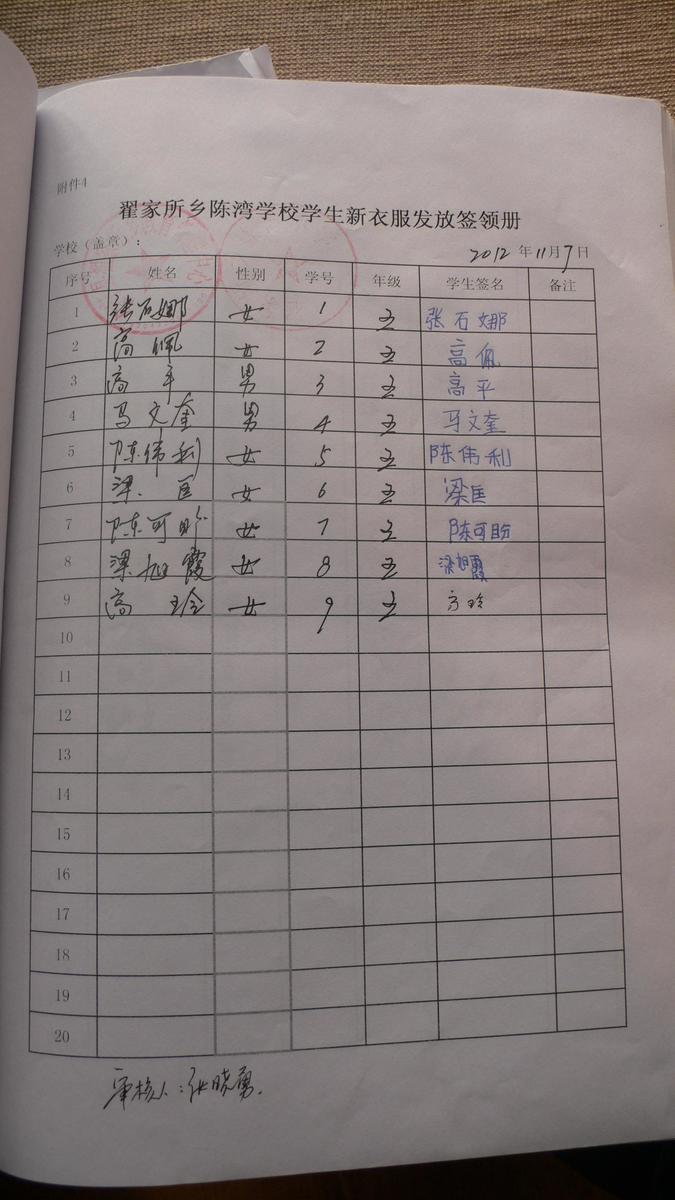 附件4
翟家所乡陈湾学校学生新衣服发放签领册
学校（盖章）： 2012 年 11 月 7 日
序号 姓名 性别 学号 年级 学生签名 备注
1 张石娜 女 1 五 张石娜
2 高佩 女 2 五 高佩
3 高平 男 3 五 高平
4 马文奎 男 4 五 马文奎
5 陈伟利 女 5 五 陈伟利
6 梁匡 女 6 五 梁匡
7 陈可盼 女 7 五 陈可盼
8 梁旭霞 女 8 五 梁旭霞
9 高玲 女 9 五 高玲
10
11
12
13
14
15
16
17
18
19
20
审核人：张晓勇